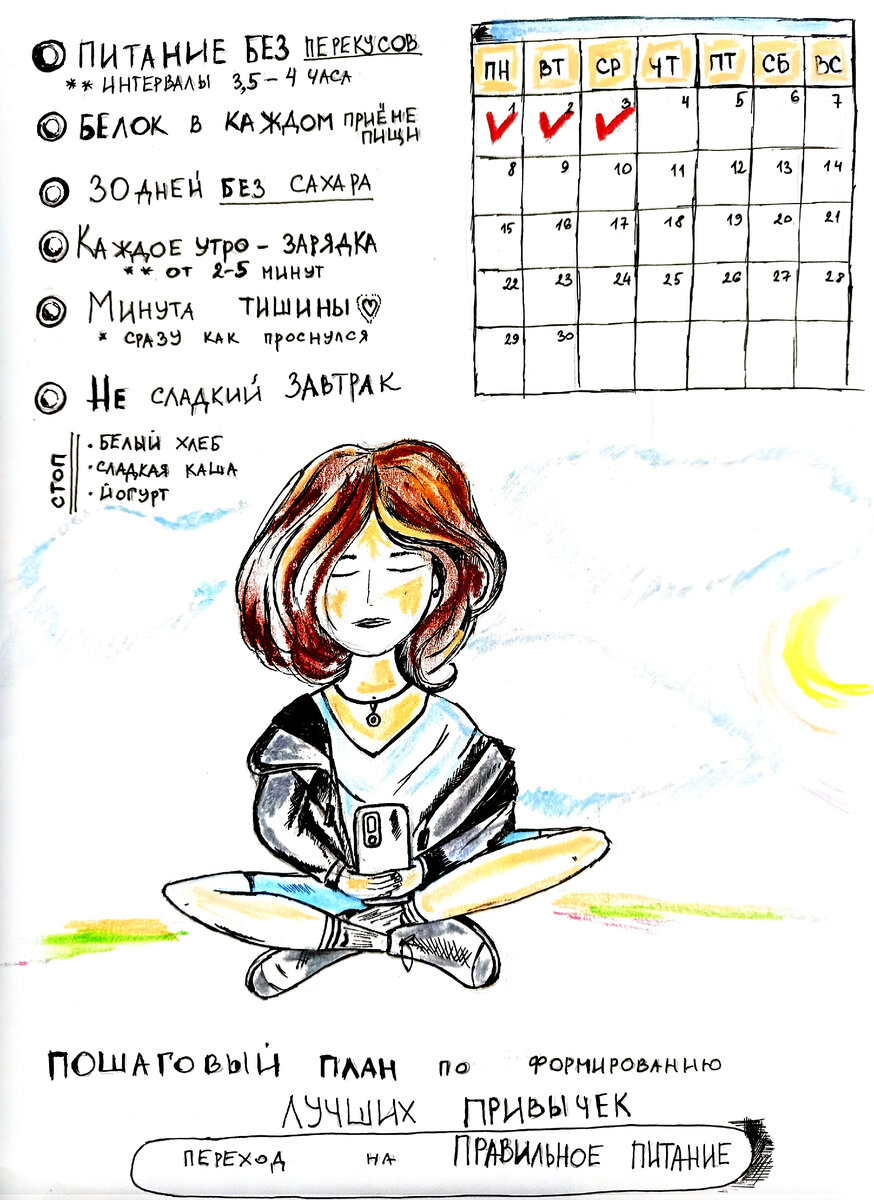 ПИТАНИЕ БЕЗ ПЕРЕКУСОВ
** ИНТЕРВАЛЫ 3,5-4 ЧАСА
БЕЛОК В КАЖДОМ ПРИЁНЕ
ПИЩИ
30 ДНЕЙ БЕЗ САХАРА
КАЖДОЕ УТРО - ЗАРЯДКА
** ОТ 2-5 МИНУТ
МИНУТА ТИШИНЫ
* СРАЗУ КАК ПРОСНУЛСЯ
НЕ СЛАДКИЙ ЗАВТРАК
СТОП
• БЕЛЫЙ ХЛЕБ
• СЛАДКАЯ КАША
• ЙОГУРТ
ПН ВТ СР ЧТ ПТ СБ ВС
1 2 3 4 5 6 7
8 9 10 11 12 13 14
15 16 17 18 19 20 21
22 23 24 25 26 27 28
29 30
ПОШАГОВЫЙ ПЛАН ПО ФОРМИРОВАНИЮ
ЛУЧШИХ ПРИВЫЧЕК
ПЕРЕХОД НА ПРАВИЛЬНОЕ ПИТАНИЕ